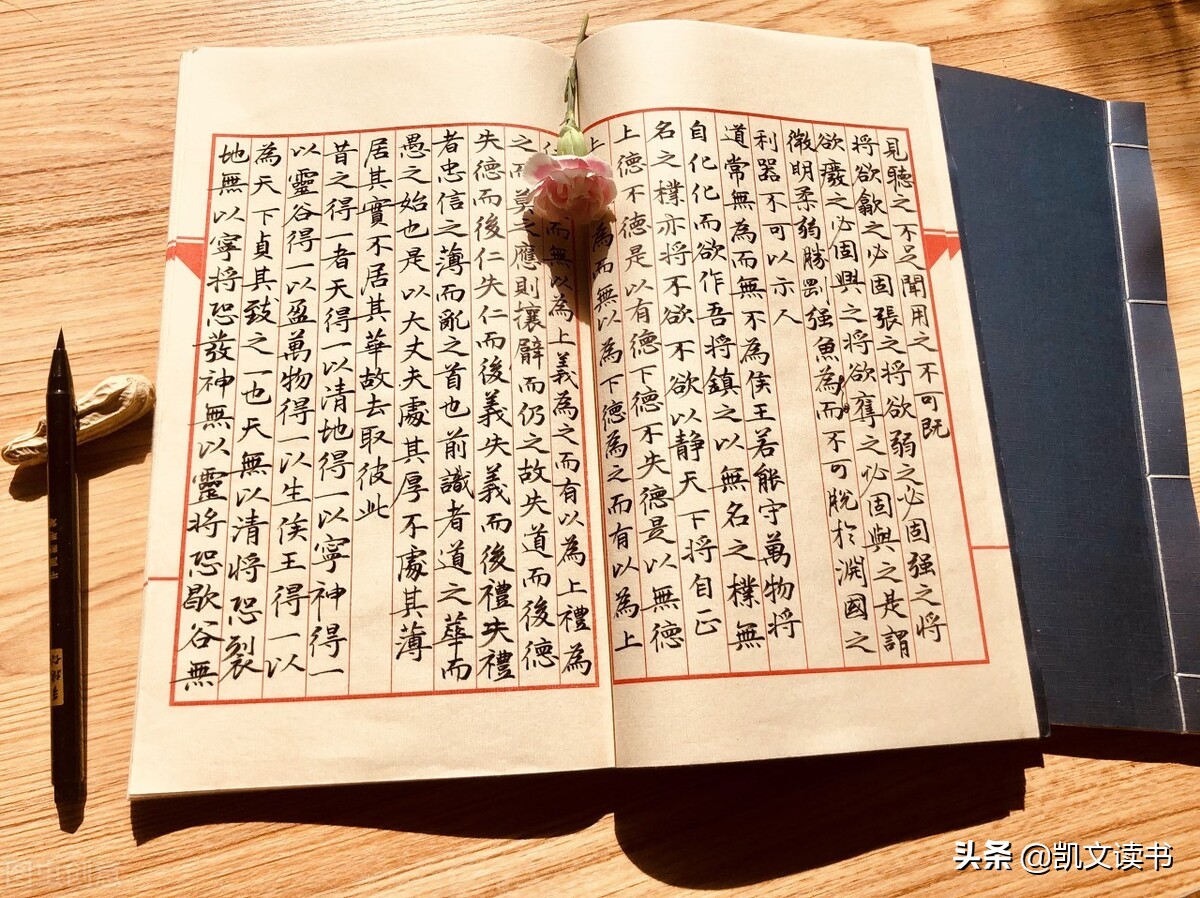 見聽之不足聞用之不可既
將欲歙之必固張之將欲弱之必固强之將
欲癈之必固興之將欲奪之必固與之是謂
微明柔弱勝剛强魚為而不可脫於淵國之
利器不可以示人
道常無為而無不為侯王若能守萬物將
自化化而欲作吾將鎮之以無名之樸無
名之樸亦將不欲不欲以静天下將自正
上德不德是以有德下德不失德是以無德
上為而無以為下德為之而有以為上
而無以為上義為之而有以為上禮為
之而莫之應則攘臂而仍之故失道而後德
失德而後仁失仁而後義失義而後禮失禮
者忠信之薄而亂之首也前識者道之華而
愚之始也是以大丈夫處其厚不處其薄
居其實不居其華故去取彼此
昔之得一者天得一以清地得一以寧神得一
以靈谷得一以盈萬物得一以生侯王得一以
為天下貞其致之一也天無以清將恐裂
地無以寧將恐發神無以靈將恐歇谷無
头条 @凯文读书